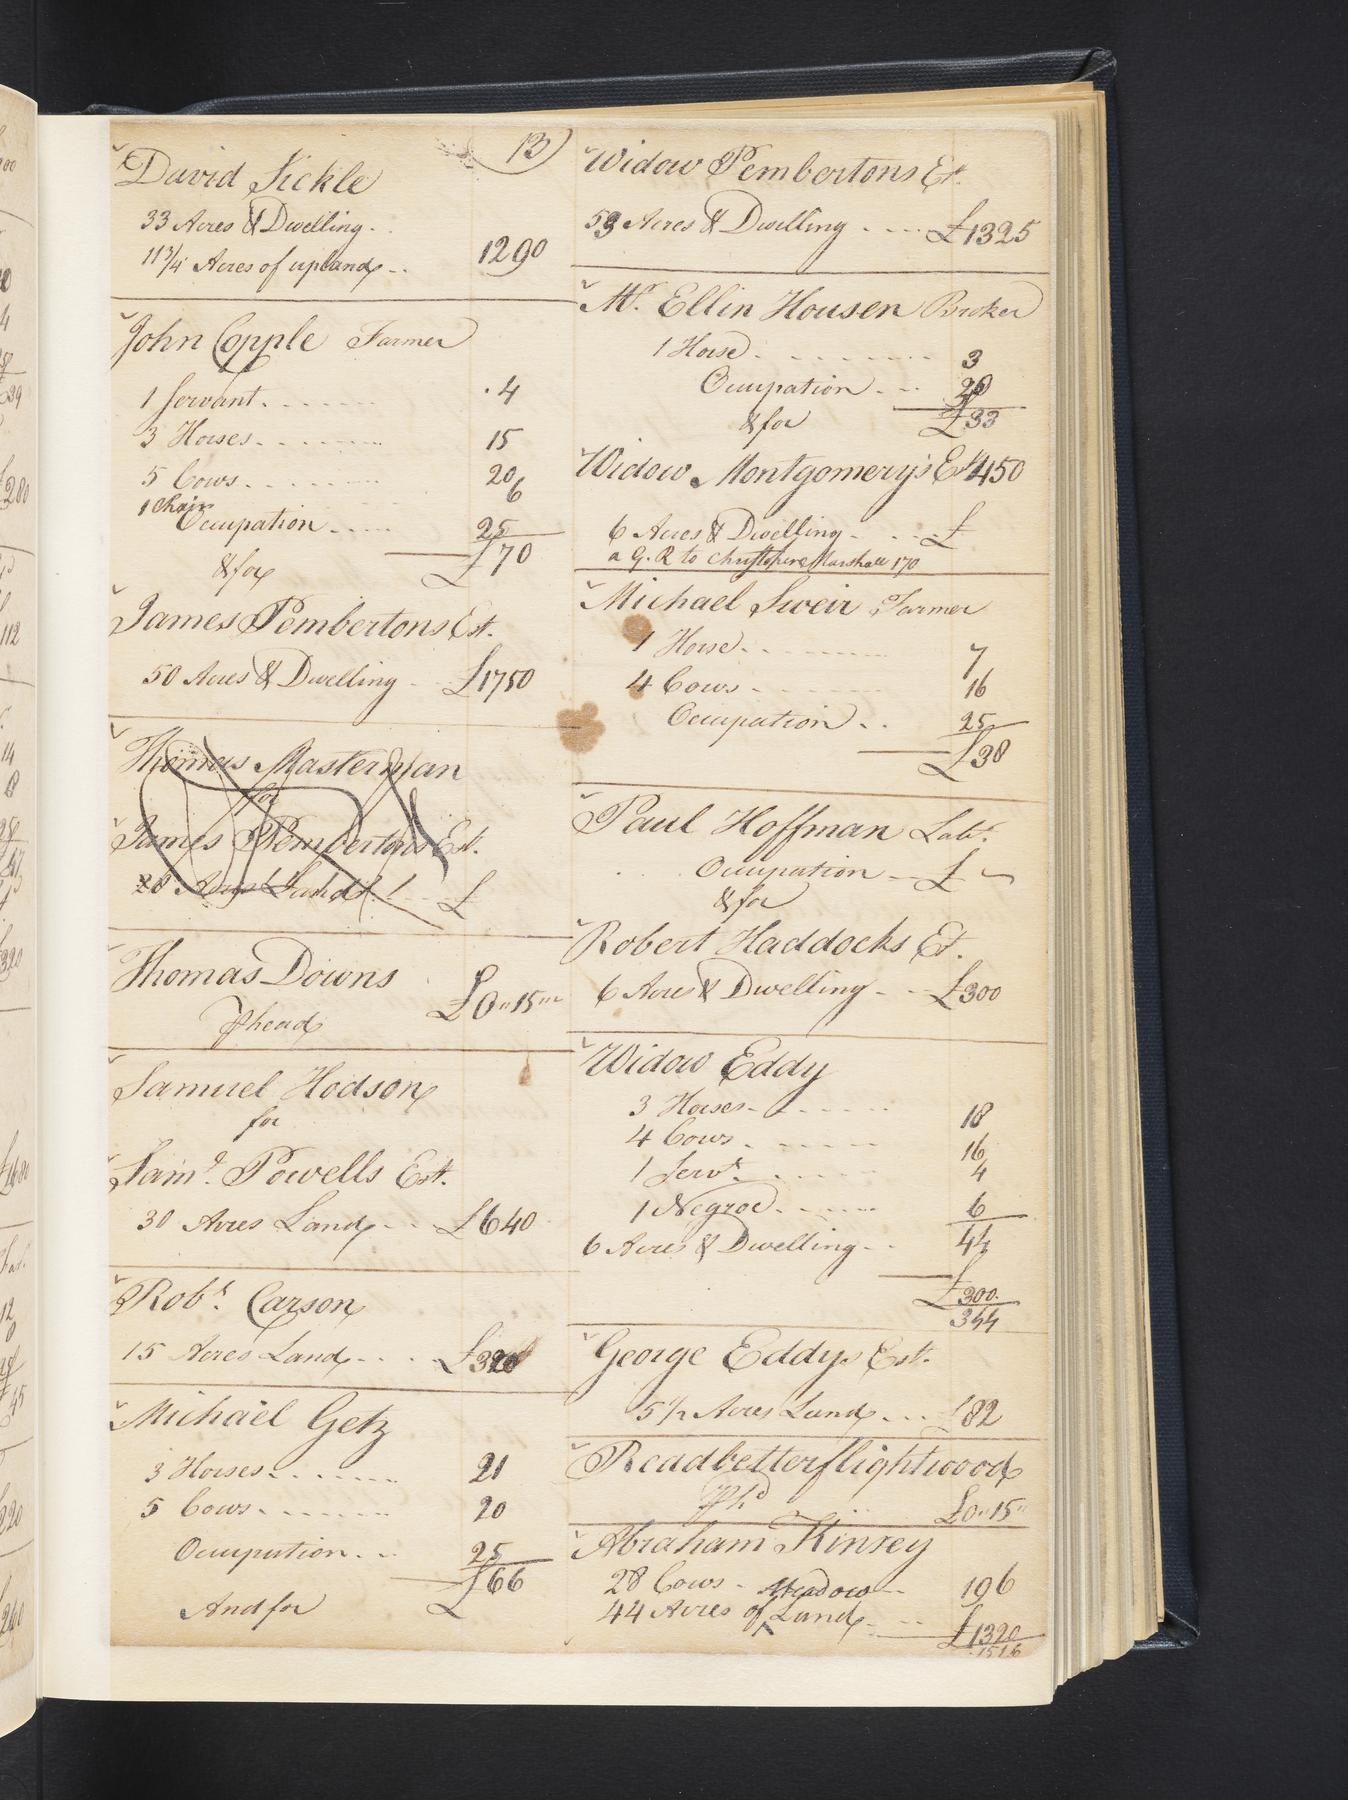 13
David Sickle
33 Acres & Dwelling
11 3/4 Acres of upland 1290
John Copple Farmer
1 Servant 4
3 Horses 15
5 Cows 20
1 Chair 6
Occupation 25
& for £70
James Pembertons Est.
50 Acres & Dwelling £1750
Thomas Masterman
for
James Pembertons Est.
28 Acres Land £
Thomas Downs
£0"15"
P head
Samuel Hodson
for
Saml. Powells Est.
30 Acres Land £640
Robt. Carson
15 Acres Land £320
Michael Getz
3 Horses 21
5 Cows 20
Occupation 25
£66
And for
Widow Pembertons Est.
53 Acres & Dwelling £1325
Mr. Ellin Housen Broker
1 Horse 3
Occupation
& for £33
Widow Montgomery's Est 450
6 Acres & Dwelling £
a G. R to Christopher Marshall 170
Michael Sweir Farmer
1 Horse 7
4 Cows 16
Occupation 25
£38
Paul Hoffman Labr.
Occupation £
& for
Robert Haddocks Et.
6 Acres & Dwelling £300
Widow Eddy
3 Horses 18
4 Cows 16
1 Servt. 4
1 Negroe 6
6 Acres & Dwelling 44
£300
344
George Eddys Est.
5 1/2 Acres Land 82
Readbetterflightwood
P hd £0"15"
Abraham Kinsey
28 Cows 196
Meadow
44 Acres of Land £1320
1516